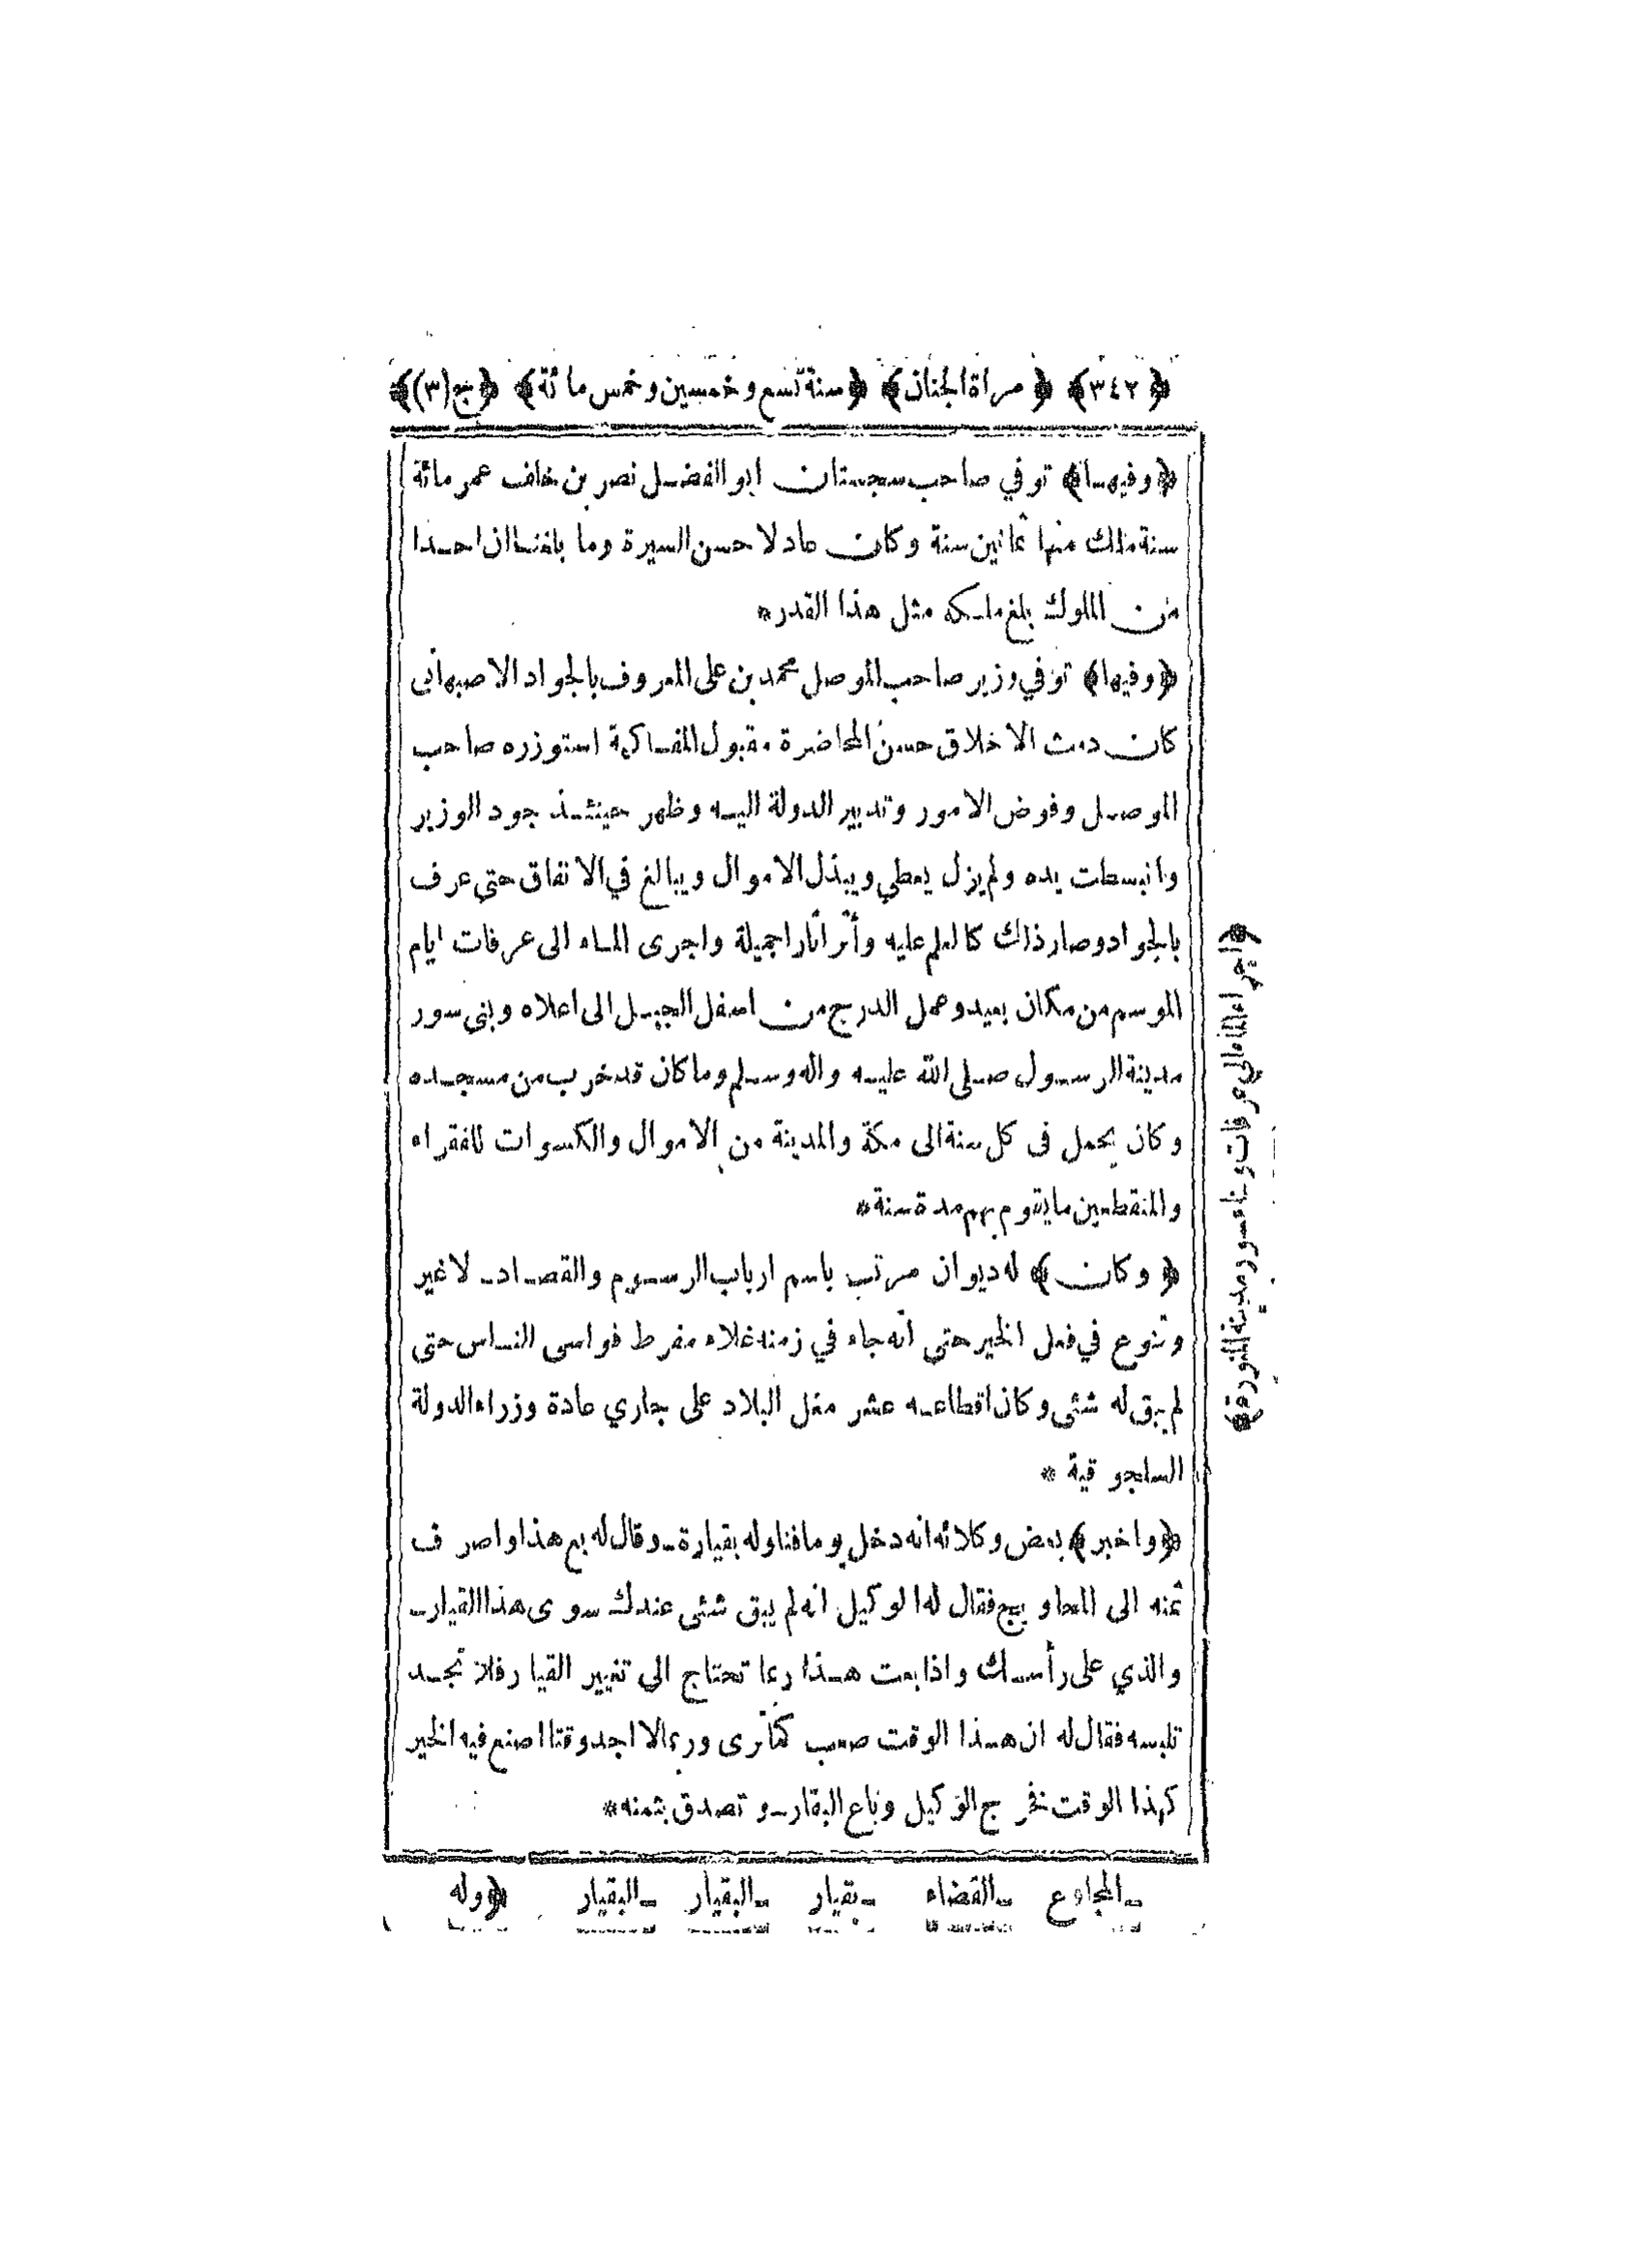 ﴿٣٤٢﴾ ﴿مرآة الجنان﴾ ﴿سنة تسع وخمسين وخمس مائة﴾ ﴿ج(٣)﴾
﴿وفيها﴾ توفي صاحب سجستان ابو الفضل نصر بن خلف عمر مائة
سنة ملك منها ثمانين سنة وكان عادلا حسن السيرة وما بلغنا ان احدا
من الملوك بلغ ملكه مثل هذا القدر *
﴿وفيها﴾ توفي وزير صاحب الموصل محمد بن على المعروف بالجواد الاصبهانى
كان دمث الاخلاق حسن المحاضرة مقبول المفاكهة استوزره صاحب
الموصل وفوض الامور وتدبير الدولة اليه وظهر حينئذ جود الوزير
وانبسطت يده ولم يزل يعطي ويبذل الاموال ويبالغ في الانفاق حتى عرف
بالجواد وصار ذلك كالعلم عليه وأثر آثارا جميلة واجرى الماء الى عرفات ايام
الموسم من مكان بعيد وعمل الدرج من اسفل الجبل الى اعلاه وبنى سور
مدينة الرسول صلى الله عليه واله وسلم وما كان قد خرب من مسجده
وكان يحمل فى كل سنة الى مكة والمدينة من الاموال والكسوات للفقراء
والمنقطعين ما يقوم بهم مدة سنة *
﴿وكان﴾ له ديوان مرتب باسم ارباب الرسوم والقصاد ـ لاغير
وتنوع في فعل الخير حتى انه جاء في زمنه غلاء مفرط فواسى الناس حتى
لم يبق له شئى وكان اقطاعه عشر مغل البلاد على جاري عادة وزراء الدولة
السلجوقية *
﴿واخبر﴾ بعض وكلائه انه دخل يوما فناوله بقيارة ـ وقال له بع هذا واصرف
ثمنه الى المحاويج فقال له الوكيل انه لم يبق شئى عندك سوى هذا القيار ـ
والذي على رأسك واذا بعت هذا ربما تحتاج الى تغيير القيار فلا تجد
تلبسه فقال له ان هذا الوقت صعب كما ترى وربما لا اجد وقتا اصنع فيه الخير
كهذا الوقت فخرج الوكيل وباع البقار ـ وتصدق بثمنه *
ـ القضاء ـ بقيار ـ البقيار ـ البقيار ﴿وله
﴿اجراء الماء الى عرفات وبناء سور مدينة المنورة﴾